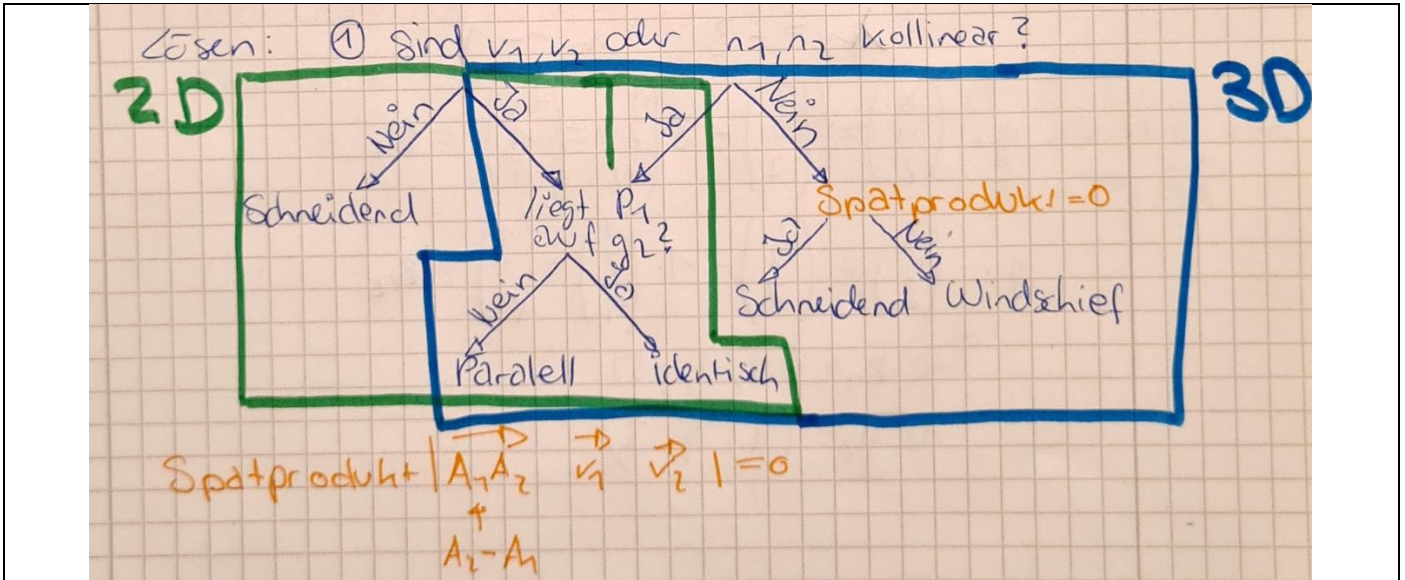 Lösen: ① Sind v1, v2 oder n1, n2 kollinear?
2D
3D
Nein Ja Ja Nein
Schneidend liegt P1 Spatprodukt = 0
auf g2?
Ja Nein
Nein Ja
Schneidend Windschief
Paralell identisch
Spatprodukt | A1A2 v1 v2 | = 0
↑
A2 - A1